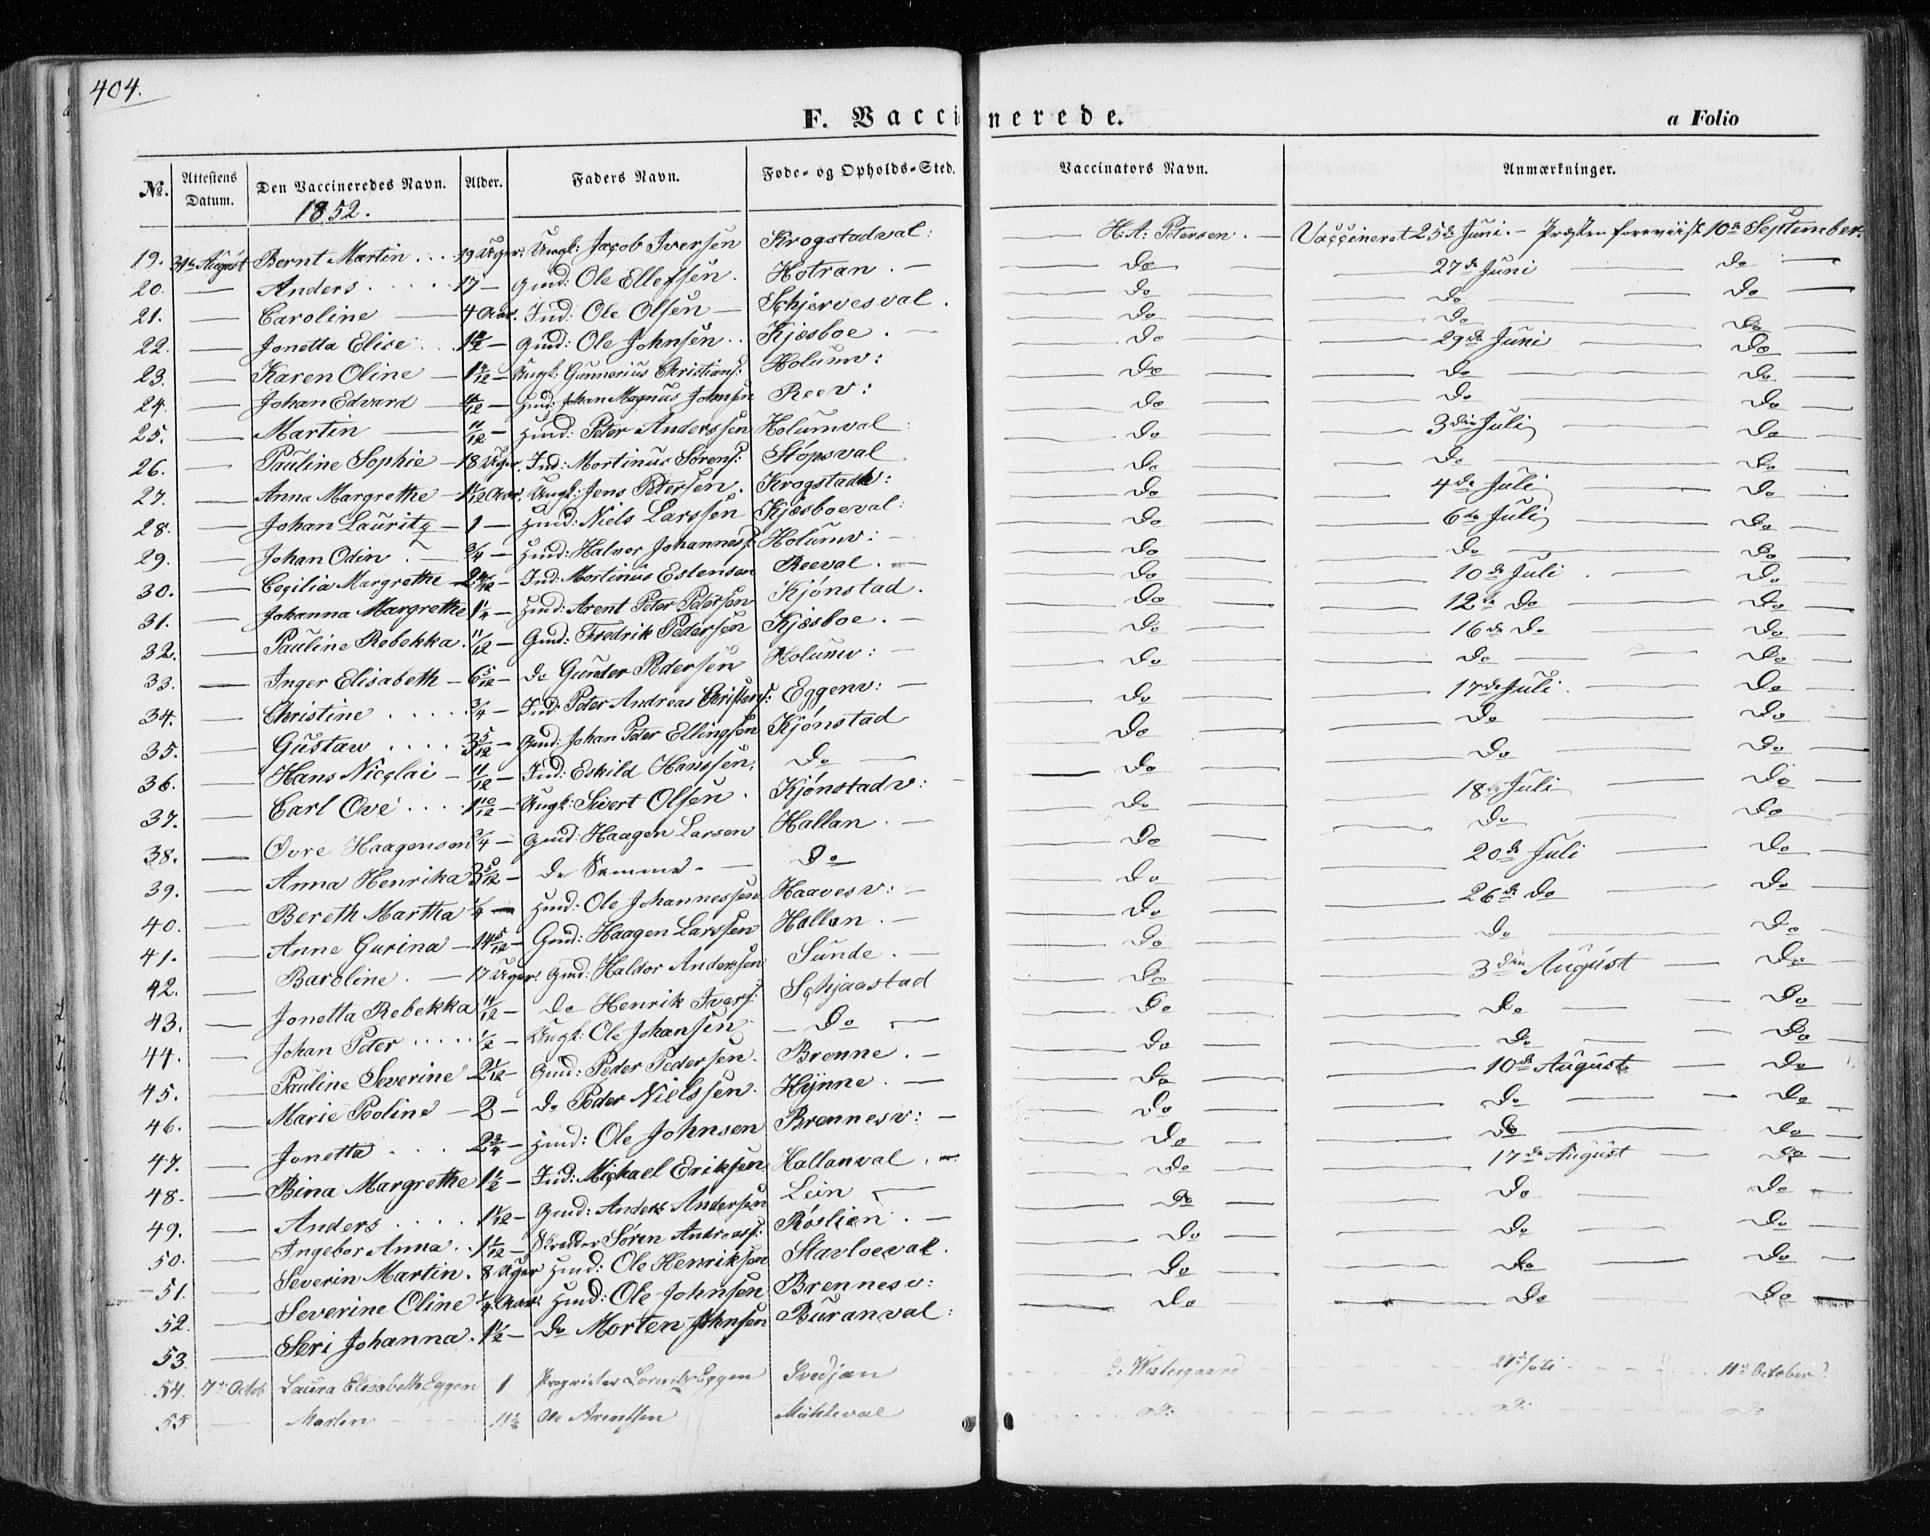 404.
F. Vaccinerede.
a Folio
No. Attestens Datum. Den Vaccineredes Navn. Alder. Faders Navn. Føde- og Opholds-Sted. Vaccinators Navn. Anmærkninger.
1852.
19. 31te August Bernt Martin 19 Uger. Ungk: Jacob Iversen Krogstadval: H. A. Petersen. — Vaccineret 25de Juni. — Præsten foreviist 10de September.
20. — Anders 17 — Gmd: Ole Ellefsen. Hotran. — Do — 27de Juni — Do —
21. — Caroline — 4 Aar. Ind: Ole Olsen — Schjervesval. Do — Do — Do —
22. — Jonetta Elise. 1½ — Gmd: Ole Johnsen. Kjesboe. — Do — Do — Do
23. — Karen Oline — Ungk: Gunnerius Christians: Holumv: Do — 29de Juni — Do —
24. — Johan Edvard — Hmd: Johan Magnus Johnsen Reev: Do — Do — Do —
25. — Martin — 11/12 — Hmd: Peter Anderssen Holumval: Do — Do — Do —
26. — Pauline Sophie — 18 Uger. Ind: Mortinus Sørens: Stopsval Do — 3die Juli — Do —
27. — Anna Margrethe — Aar. Ungk: Jens Petersen. Krogstadv: Do — Do — Do —
28. — Johan Lauritz — 1 — Hmd: Niels Larssen Kjesboeval: Do — 4de Juli — Do —
29. — Johan Odin. — 3/4 — Hmd: Halvor Johanness: Holumv: — Do — 6te Juli — Do —
30. — Cecilia Margrethe — Ind: Mortinus Estensen Reeval. — Do — Do — Do —
31. — Johanna Margrethe 1¼ — Hmd: Arent Peter Petersen Kjønstad. Do — 10de Juli. — Do —
32. — Pauline Rebekka. 11/12 — Gmd: Fredrik Pedersen Kjesboe. — Do — 12te Do — Do —
33. — Inger Elisabeth — 6 5/12 — Do Gunder Pedersen Holumv: — Do — 16de Do — Do —
34. — Christine 3/4 — Ind: Peter Andreas Christens: Eggenv: — Do — Do — Do —
35. — Gustav 3 5/12 — Gmd: Johan Peter Ellingsen Kjønstad Do — 17de Juli. — Do —
36. — Hans Nicolai — 11/12 — Ind: Eskild Hanssen. Do — Do — Do — Do —
37. — Carl Ove 1 10/12 — Ungk: Sivert Olsen. Kjønstadv: — Do — Do — Do —
38. — Øvre Haagensen 3/4 — Gmd: Haagen Larsen Hallan. — Do — 18de Juli — Do —
39. — Anna Henrika 3 5/12 — Do Samme — Do Do — Do — Do —
40. — Bereth Martha ¼ — Hmd: Ole Johannessen Haavesv: — Do — 20de Juli — Do —
41. — Anne Gurina — 14 5/12 — Gmd: Haagen Larssen Hallan. — Do — 26de Do — Do —
42. — Baroline. — 17 Uger. Gmd: Haldor Anderssen Sunde. — Do — Do — Do —
43. — Jonetta Rebekka 11/12 — Do Henrik Ivers: Schjaastad Do — 3die August — Do —
44. — Johan Peter ½ — Ungk: Ole Johansen — Do — Do — Do — Do
45. — Pauline Severine 2 1/12 — Gmd: Peder Pedersen. Brenne. — Do — Do — Do
46. — Marie Poline — 2 — Do Peder Nielssen. Hynne. — Do — 10de August — Do —
47. — Jonetta 2¾ — Hmd: Ole Johnsen Brennesv: — Do — Do — Do —
48. — Bina Margrethe 1½ — Ind: Mickael Eriksen Hallanval. — Do — Do — Do —
49. — Anders Gmd: Anders Andersen Lein — Do — 17de August — Do —
50. — Ingebor Anna. Skrædder Søren Andreas: Røslien. — Do — Do — Do —
51. — Severin Martin. 8 Uger Hmd: Ole Henriksen Stavloeval. Do — Do — Do —
52. — Severine Oline ¼ Aar. Hmd: Ole Johnsen Brennesv: Do — Do — Do —
53. — Seri Johanna. 1½ — Do Morten Johnsen Buranval: Do — Do — Do —
54. 7de Octob Laura Elisabeth Eggen 1 Proprietær Lorents Eggen Svedjan Westergaard 21de Juli 11te October
55 — Martin 11½ Ole Arentsen Do Do Do